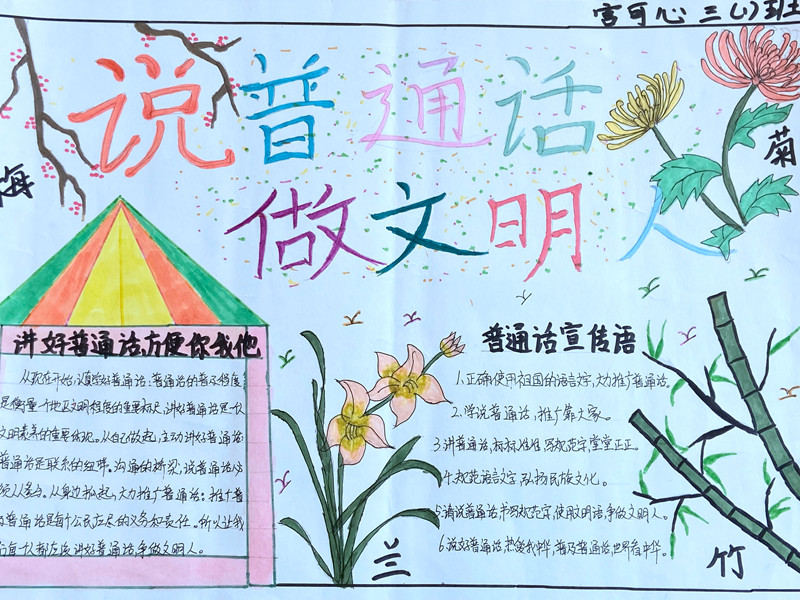 宫可心 三(1)班
说普通话
做文明人
梅
菊
讲好普通话方便你我他
从现在开始,认真学好普通话:普通话的普及程度
是衡量一个地区文明程度的重要标尺,讲好普通话是一个人
文明素养的重要体现。从自己做起,主动讲好普通话:
普通话是联系的纽带。沟通的桥梁,说普通话人
人参与。从身边抓起,大力推广普通话:推广普
普通话是每个公民应尽的义务和责任。所以让我
们每一人都应该讲好普通话,争做文明人。
普通话宣传语
1.正确使用祖国的语言文字,大力推广普通话。
2.学说普通话,推广靠大家。
3.讲普通话,标标准准,写规范字,堂堂正正。
4.规范语言文字,弘扬民族文化。
5.请说普通话,书写规范字,使用文明语,争做文明人。
6.说好普通话,热爱我中华,普及普通话,世界看中华。
兰
竹